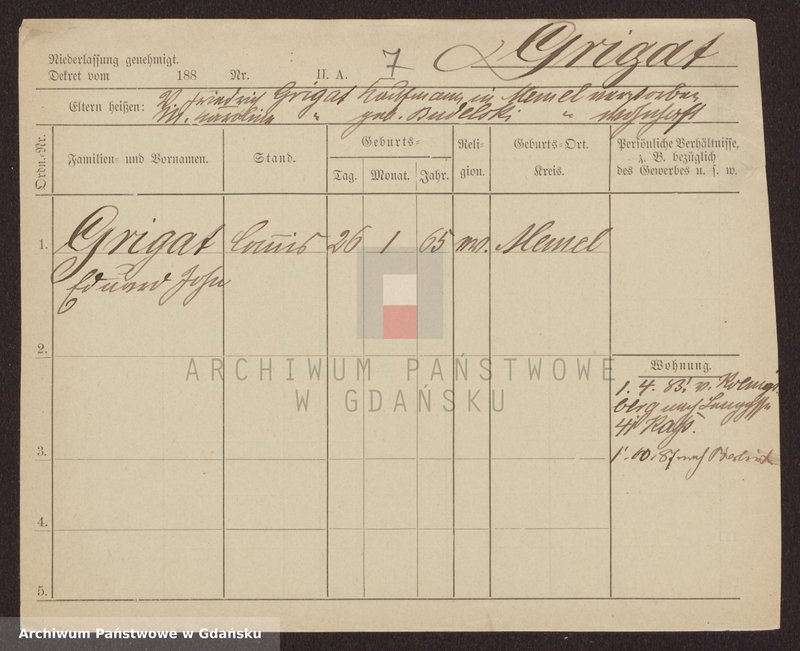 Niederlassung genehmigt.
Dekret vom 188 Nr. II. A. 7 Grigat
Eltern heißen: V. Friedrich Grigat Kaufmann in Memel verstorben
M. Karoline " geb. Budelski "
Ordn.-Nr. Familien- und Vornamen. Stand. Geburts- Tag. Monat. Jahr. Religion. Geburts-Ort. Kreis. Persönliche Verhältnisse, z. B. bezüglich des Gewerbes u. s. w.
1. Grigat Comis 26 1 65 ev. Memel
Eduard John
2.
Wohnung.
1. 4. 85. v. Königs-
berg nach Langgasse
41 Kaß.
3.
1. 10. 87 nach Berlin
4.
5.
ARCHIWUM PAŃSTWOWE
W GDAŃSKU
Archiwum Państwowe w Gdańsku